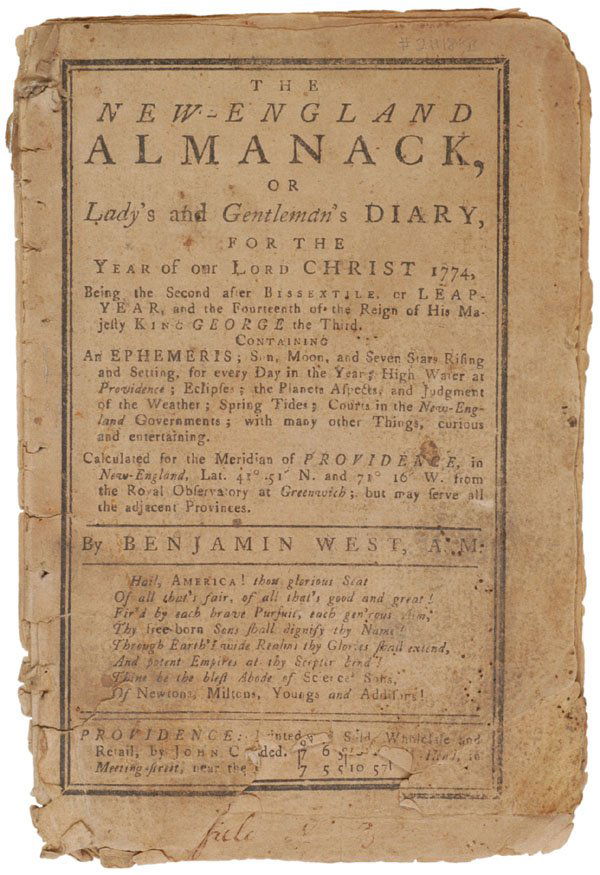 THE
NEW-ENGLAND
ALMANACK,
OR
Lady's and Gentleman's DIARY,
FOR THE
YEAR of our LORD CHRIST 1774,
Being the Second after BISSEXTILE, or LEAP-
YEAR, and the Fourteenth of the Reign of His Ma-
jeſty KING GEORGE the Third.
CONTAINING
An EPHEMERIS; Sun, Moon, and Seven Stars Riſing
and Setting, for every Day in the Year; High Water at
Providence; Eclipſes; the Planets Aſpects, and Judgment
of the Weather; Spring Tides; Courts in the New-Eng-
land Governments; with many other Things, curious
and entertaining.
Calculated for the Meridian of PROVIDENCE, in
New-England, Lat. 41° 51′ N. and 71° 16′ W. from
the Royal Obſervatory at Greenwich; but may ſerve all
the adjacent Provinces.
By BENJAMIN WEST, A.M.
Hail, AMERICA! thou glorious Seat
Of all that's fair, of all that's good and great!
Fir'd by each brave Purſuit, each gen'rous Aim,
Thy free-born Sons ſhall dignify thy Name!
Through Earth's wide Realms thy Glories ſhall extend,
And potent Empires at thy Scepter bend!
Thine be the bleſt Abode of Science' Sons,
Of Newtons, Miltons, Youngs and Addiſons!
PROVIDENCE: Printed and Sold, Wholeſale and
Retail, by JOHN in
Meeting-ſtreet, near the